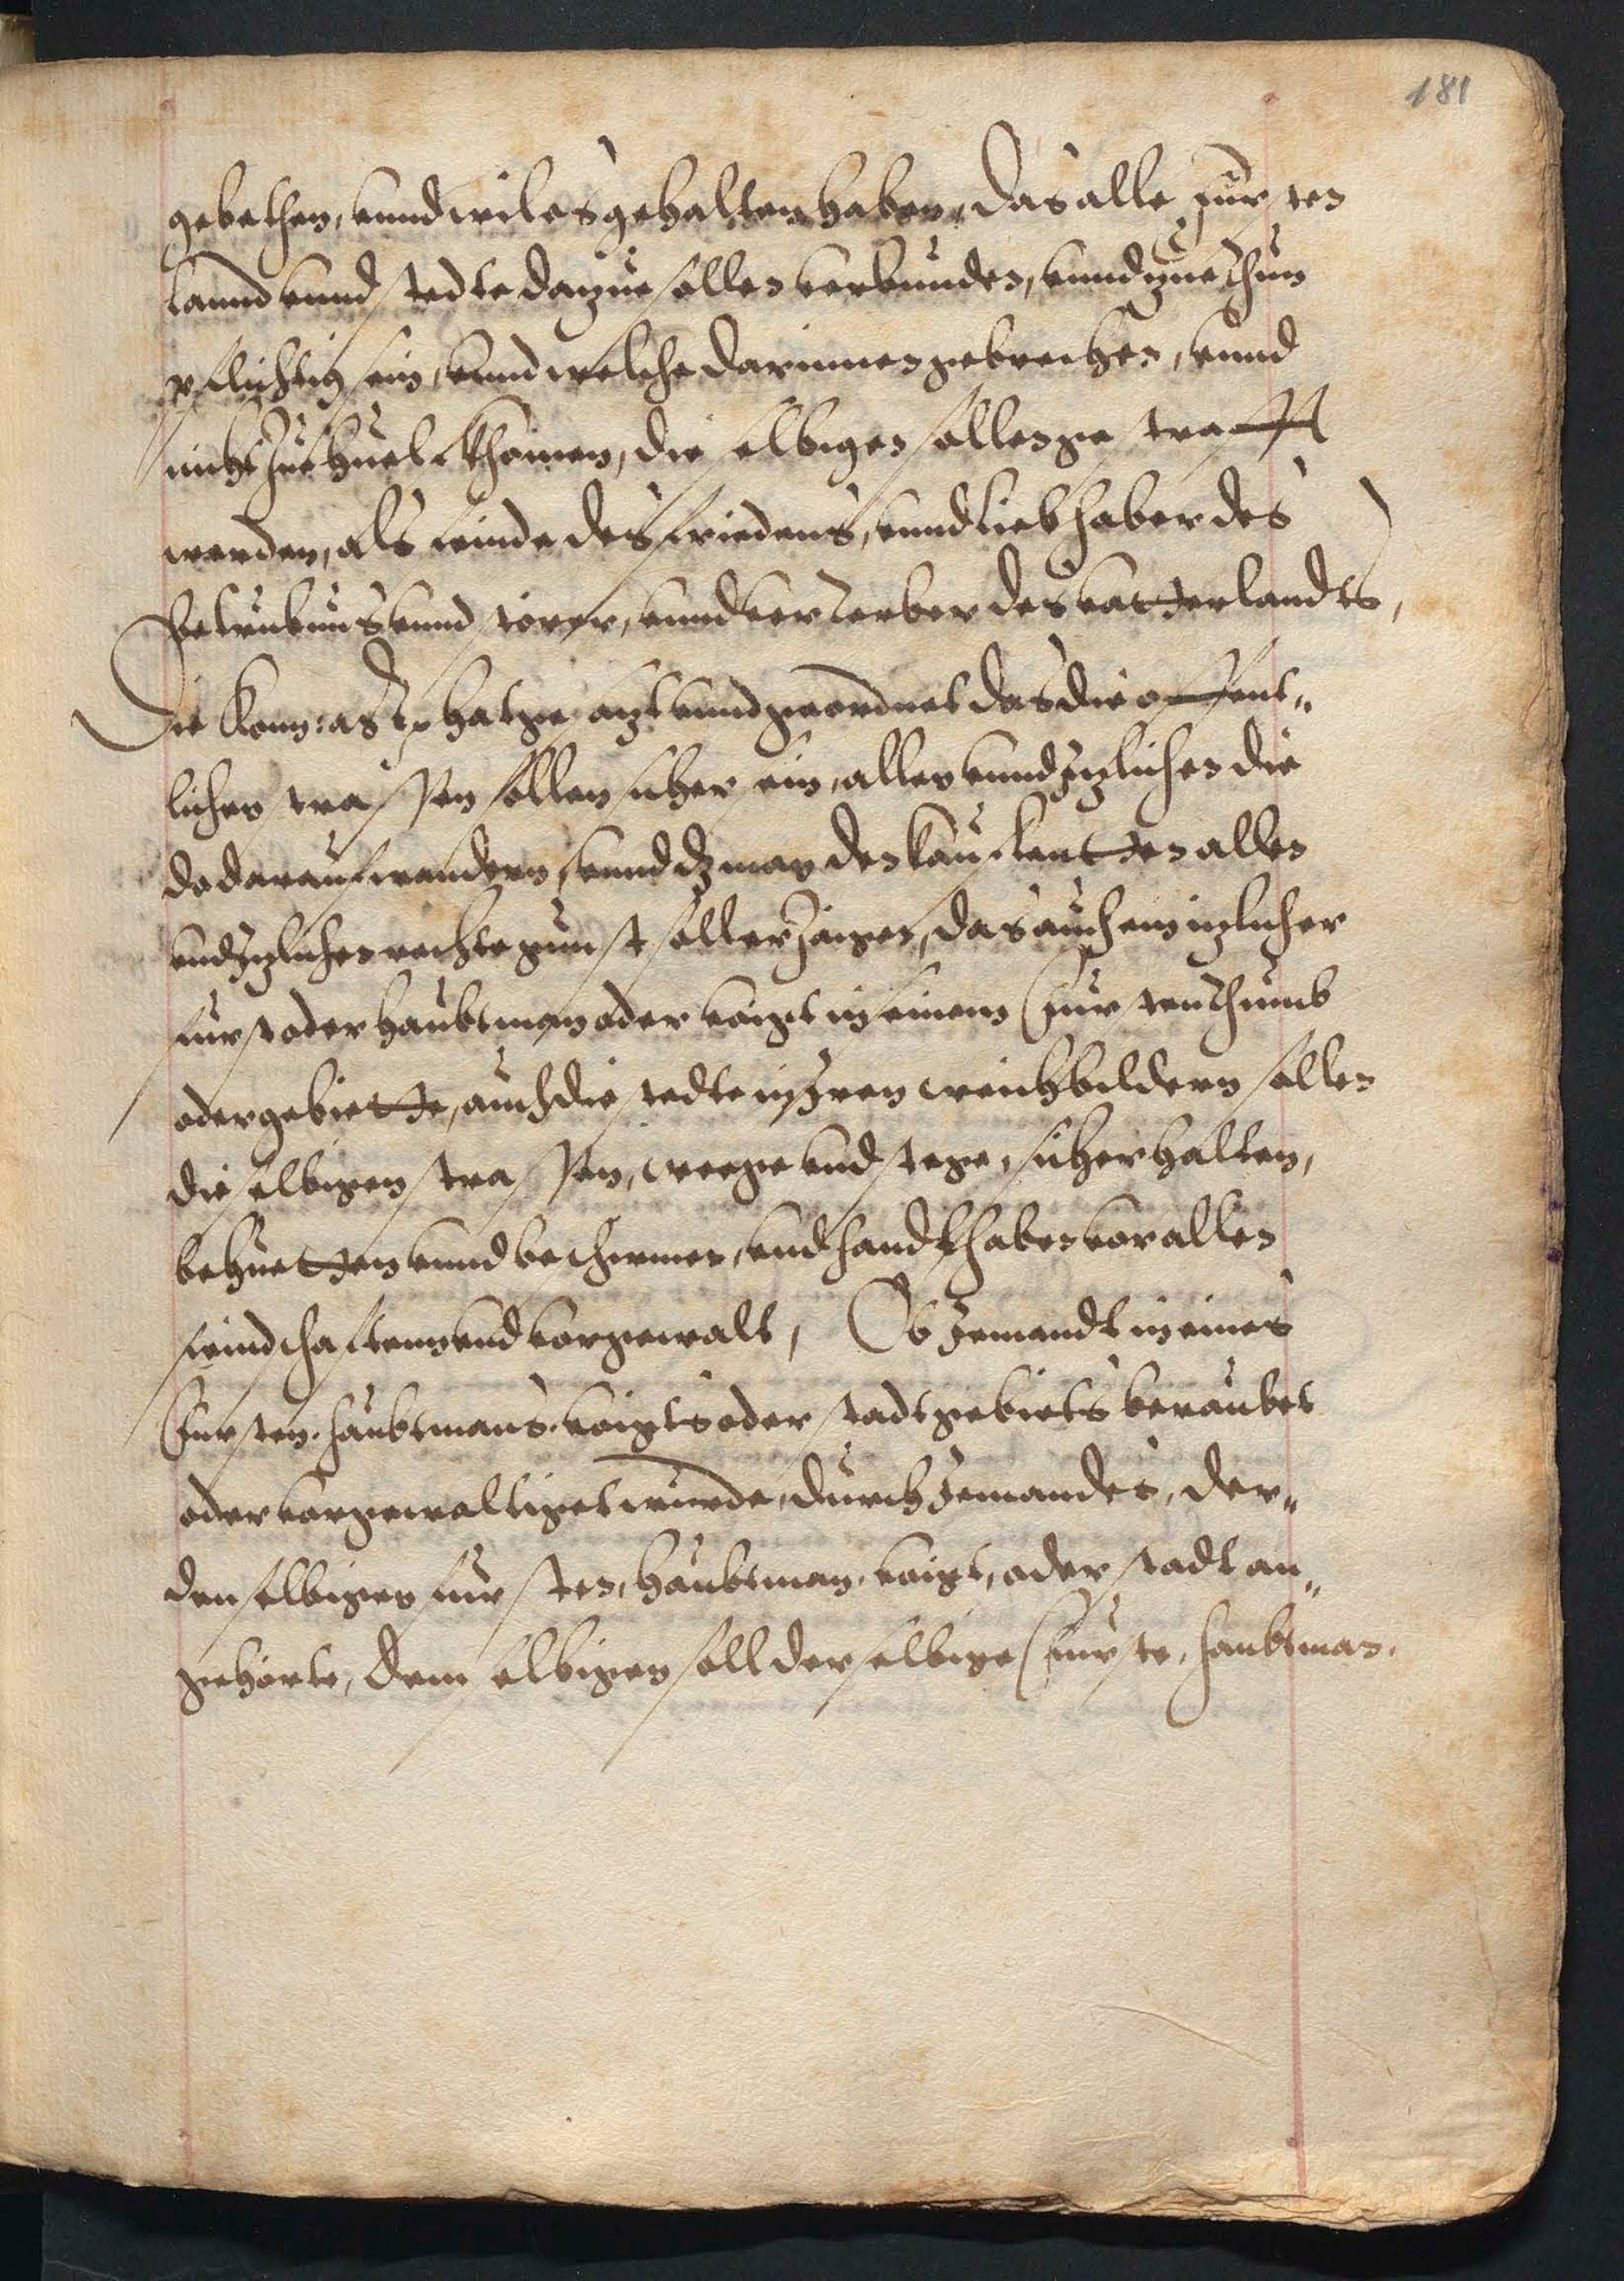 181
gebethen, vnnd wil es gehalten haben, Das alle Fursten
lannd vnnd stedte dazue sollen verbunden, vnnd zue thun
pflichtig sein, vnnd welche darinnen gebrechen, vnnd
nicht zue huelf khomen, die selbigen sollen gestrafft
werden, als feinde des friedens, vnnd liebhaber des
vnnd störer, vnnd verterber des vatterlandts,
Die Kon: Mt hat gesagt vnnd geordnet das die offent„
lichen strassen sollen sicher sein, allen vnnd itzlichen die
do darauf wandern, vnnd dz man den kaufleutten allen
vnd itzlichen rechte gunst soll erzaigen, das auch ein itzlicher
furst oder haubtman oder voigt in seinem Furstenthumb
oder gebiette, auch die stedte in iren weichbildern sollen
die selbigen strassen, weege vnd stege, sicher halten,
behuetten vnnd beschirmen, vnd handthaben vor allen
feindschafften vnd vor gewalt, Ob Jemandt in eines
Fursten, haubtmans, voigts oder stadt gebiets beraubet
oder vorgewaltiget wurde, durch Jemandes, der„
den selbigen fursten, haubtman, voigt, oder stadt an„
gehörte, dem selbigen soll der selbige Furste, haubtman,